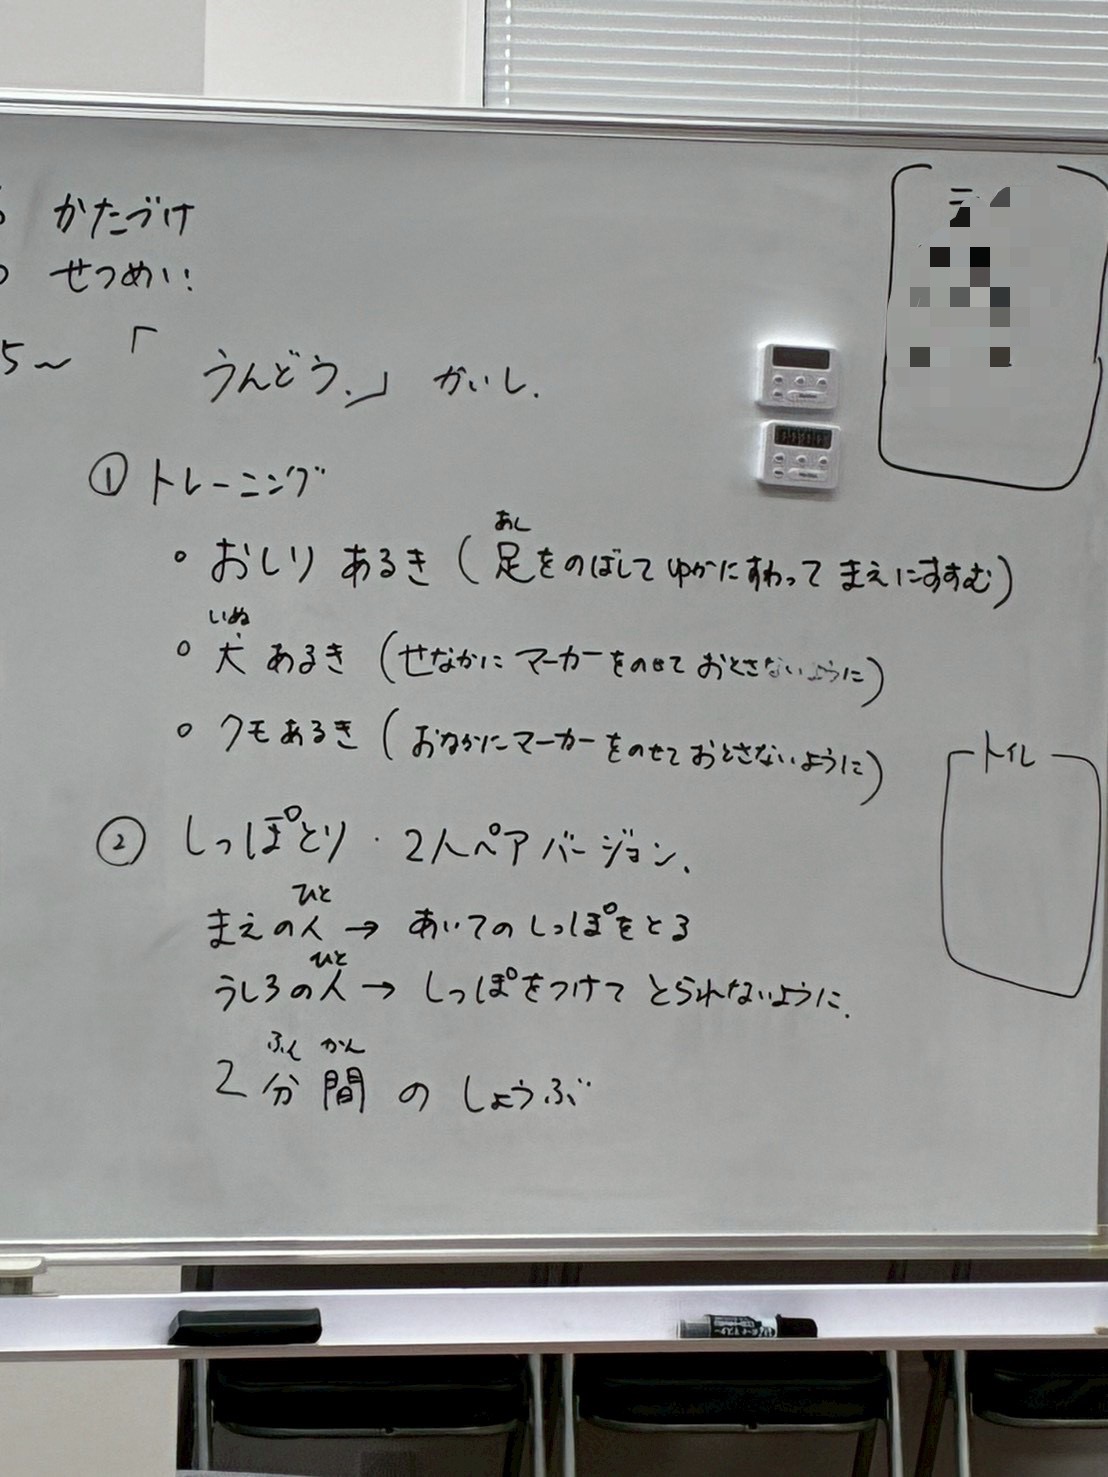 かたづけ
せつめい:
5〜 「うんどう.」 かいし.
① トレーニング
あし
○ おしり あるき (足をのばして ゆかにすわって まえにすすむ)
いぬ
○ 犬 あるき (せなかに マーカーをのせて おとさないように)
○ クモ あるき (おなかにマーカーをのせて おとさないように)
トイレ
② しっぽとり・2人ペア バージョン.
ひと
まえの人 → あいてのしっぽをとる
ひと
うしろの人 → しっぽをつけて とられないように.
ふん かん
2 分 間 の しょうぶ